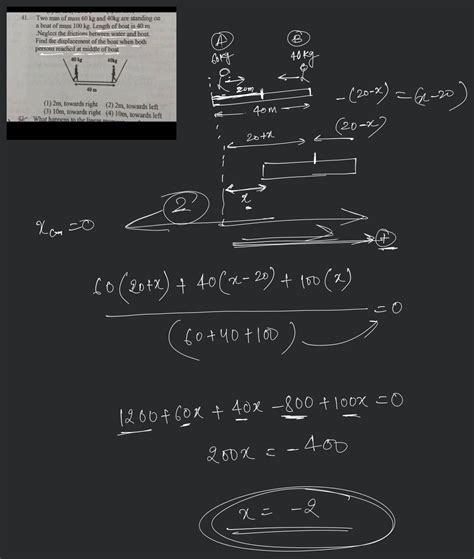 41. Two man of mass 60 kg and 40kg are standing on
a boat of mass 100 kg. Length of boat is 40 m
.Neglect the frictions between water and boat.
Find the displacement of the boat when both
persons reached at middle of boat
60 kg 40kg
40 m
(1) 2m, towards right (2) 2m, towards left
(3) 10m, towards right (4) 10m, towards left
What happens to the linear
A B
60kg 40kg
20m
40m
-(20-x) = (x-20)
20+x (20-x)
x
2
x_cm = 0
+
60(20+x) + 40(x-20) + 100(x)
= 0
(60+40+100)
1200+60x + 40x -800 +100x = 0
200x = -400
x = -2